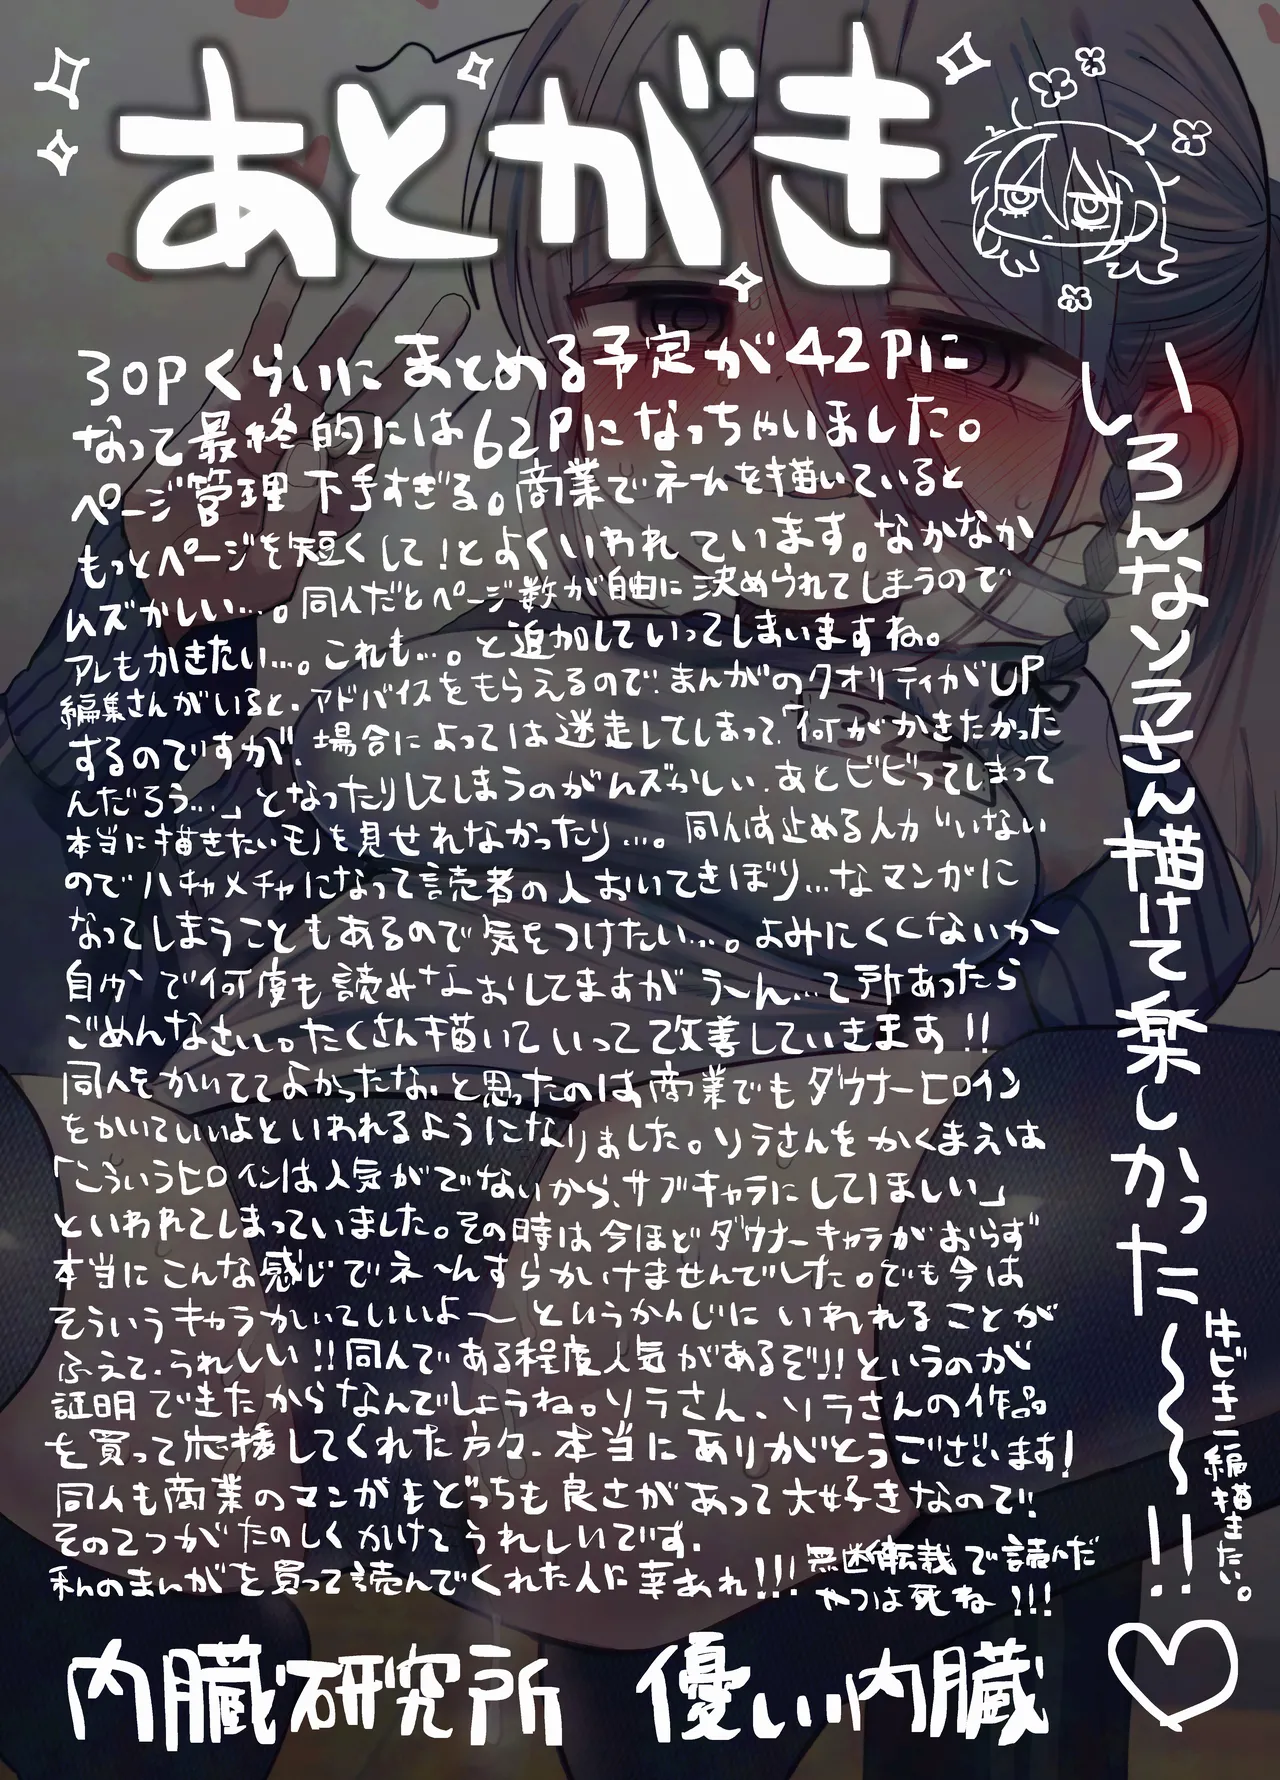 あとがき
30Pくらいにまとめる予定が42Pに
なって最終的には62Pになっちゃいました。
ページ管理下手すぎる。商業でネームを描いていると
もっとページを短くして！とよくいわれています。なかなか
ムズかしい…。同人だとページ数が自由に決められてしまうので
アレもかきたい…。これも…。と追加していってしまいますね。
編集さんがいると、アドバイスをもらえるので、まんがのクオリティがUP
するのですが、場合によっては迷走してしまって「何がかきたかった
んだろう…」となったりしてしまうのがムズかしい、あとビビってしまって
本当に描きたいモノを見せれなかったり…。同人は止める人がいない
のでハチャメチャになって読者の人おいてきぼり…なマンガに
なってしまうこともあるので気をつけたい…。よみにくくないか
自分で何度も読みなおしてますがう〜ん…て所あったら
ごめんなさい。たくさん描いていって改善していきます!!
同人をかいててよかったな、と思ったのは商業でもダウナーヒロイン
をかいていいよといわれるようになりました。ソラさんをかくまえは
「こういうヒロインは人気がでないから、サブキャラにしてほしい」
といわれてしまっていました。その時は今ほどダウナーキャラがおらず
本当にこんな感じでネ〜んすらかいけませんでした。でも今は
そういうキャラかいていいよ〜というかんじにいわれることが
ふえて、うれしい!!同人である程度人気があるぞ!!というのが
証明できたからなんでしょうね。ソラさん、ソラさんの作品
を買って応援してくれた方々、本当にありがとうございます!
同人も商業のマンガもどっちも良さがあって大好きなので!!
その2つがたのしくかけてうれしいです。
私のまんがを買って読んでくれた人に幸あれ!!!
無断転載で読んだ
やつは死ね!!!
いろんなソラさん描けて楽しかった〜〜!!♡
牛ビキニ編描きたい。
内臓研究所 優しい内臓